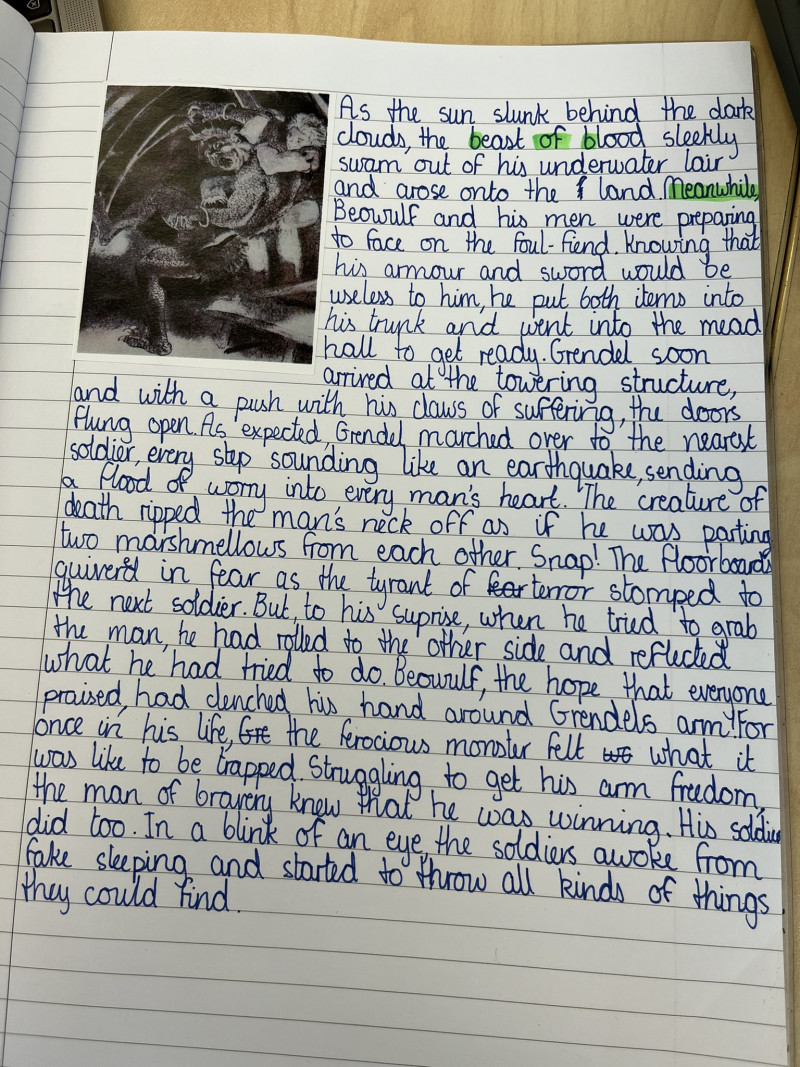 As the sun slunk behind the dark
clouds, the beast of blood sleekly
swam out of his underwater lair
and arose onto the f land. Meanwhile,
Beowulf and his men were preparing
to face on the foul-fiend. Knowing that
his armour and sword would be
useless to him, he put both items into
his trunk and went into the mead
hall to get ready. Grendel soon
arrived at the towering structure,
and with a push with his claws of suffering, the doors
flung open. As expected, Grendel marched over to the nearest
soldier, every step sounding like an earthquake, sending
a flood of worry into every man's heart. The creature of
death ripped the man's neck off as if he was parting
two marshmellows from each other. Snap! The floorboards
quivered in fear as the tyrant of fear terror stomped to
the next soldier. But, to his suprise, when he tried to grab
the man, he had rolled to the other side and reflected
what he had tried to do. Beowulf, the hope that everyone
praised, had clenched his hand around Grendels arm! For
once in his life, Gre the ferocious monster felt we what it
was like to be trapped. Struggling to get his arm freedom,
the man of bravery knew that he was winning. His soldier
did too. In a blink of an eye, the soldiers awoke from
fake sleeping and started to throw all kinds of things
they could find.